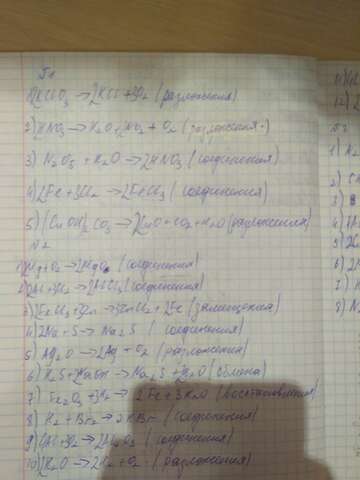 №1
1) 2KClO3 → 2KCl + 3O2 (разложения)
2) HNO3 → H2O + 2NO2 + O2 (разложения)
3) N2O5 + H2O → 2HNO3 (соединения)
4) 2Fe + 3Cl2 → 2FeCl3 (соединения)
5) (CuOH)2CO3 → 2CuO + CO2 + H2O (разложения)
№2
1) 2Mg + O2 → 2MgO (соединения)
2) 2Al + 3Cl2 → 2AlCl3 (соединения)
3) 2FeCl3 + 3Zn → 3ZnCl2 + 2Fe (замещения)
4) 2Na + S → Na2S (соединения)
5) Ag2O → 2Ag + O2 (разложения)
6) H2S + 2NaOH → Na2S + 2H2O (обмена)
7) Fe2O3 + 3H2 → 2Fe + 3H2O (восстановления)
8) H2 + Br2 → 2HBr (соединения)
9) 2Al + 3O2 → 2Al2O3 (соединения)
10) 2H2O → 2H2 + O2 (разложения)